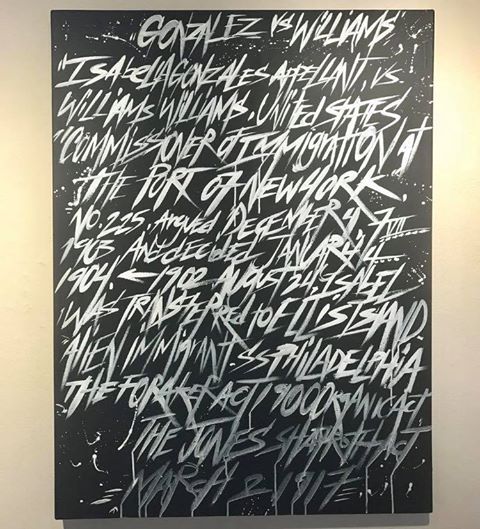 "GONZALEZ vs WILLIAMS"
"ISAbELLA GONZALES APPELLANT, vs.
WILLIAMS WILLIAMS, UNITEd STATES
"COMMISSIONER of IMMIGRATION at
THE PORT Of NEW YORK.
No. 225. Argued DECEMBER 4, 7
1903 And decided JANUARY 4....
1904. ← 1902 AUGUST 24, ISAbEL
WAS TRANSFERREd to ELLIS ISLAND.
ALIEN IMMIGRANT. SS PHILADELPHIA
THE FORAKER ACT 1900 ORGANIC ACT
THE JONES SHAFROTH ACT
MARCH 2 1917